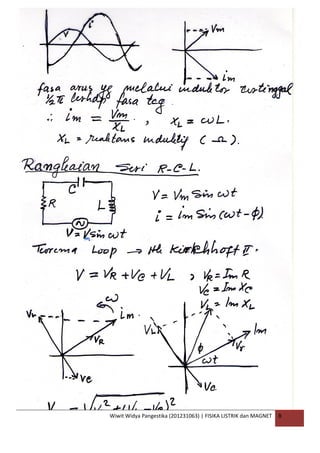 V i
Vm
im
fasa arus yg melalui induktor tertinggal
½π terhdp fasa teg.
∴ im = Vm/XL , XL = ωL.
XL = reaktans induktif (Ω).
Rangkaian Seri R-C-L.
C
R L
V = Vm Sin ωt
i = im Sin (ωt - ϕ)
V = Vm Sin ωt
Teorema Loop → Hk Kirchhoff II.
V = VR + VC + VL , VR = Im R
VC = Im XC
VL = Im XL
ω
VL im
VR
VC
VL
Im
Vr
ϕ
ωt
VC
Wiwit Widya Pangestika (201231063) | FISIKA LISTRIK dan MAGNET